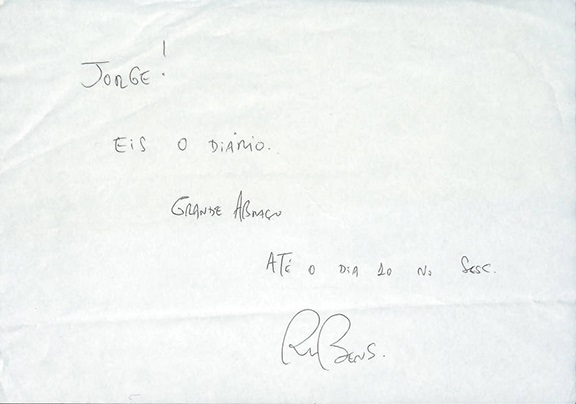 JORGE!
EIS O DIÁRIO.
GRANDE ABRAÇO
ATÉ O DIA 10 NO SESC.
RUBENS.